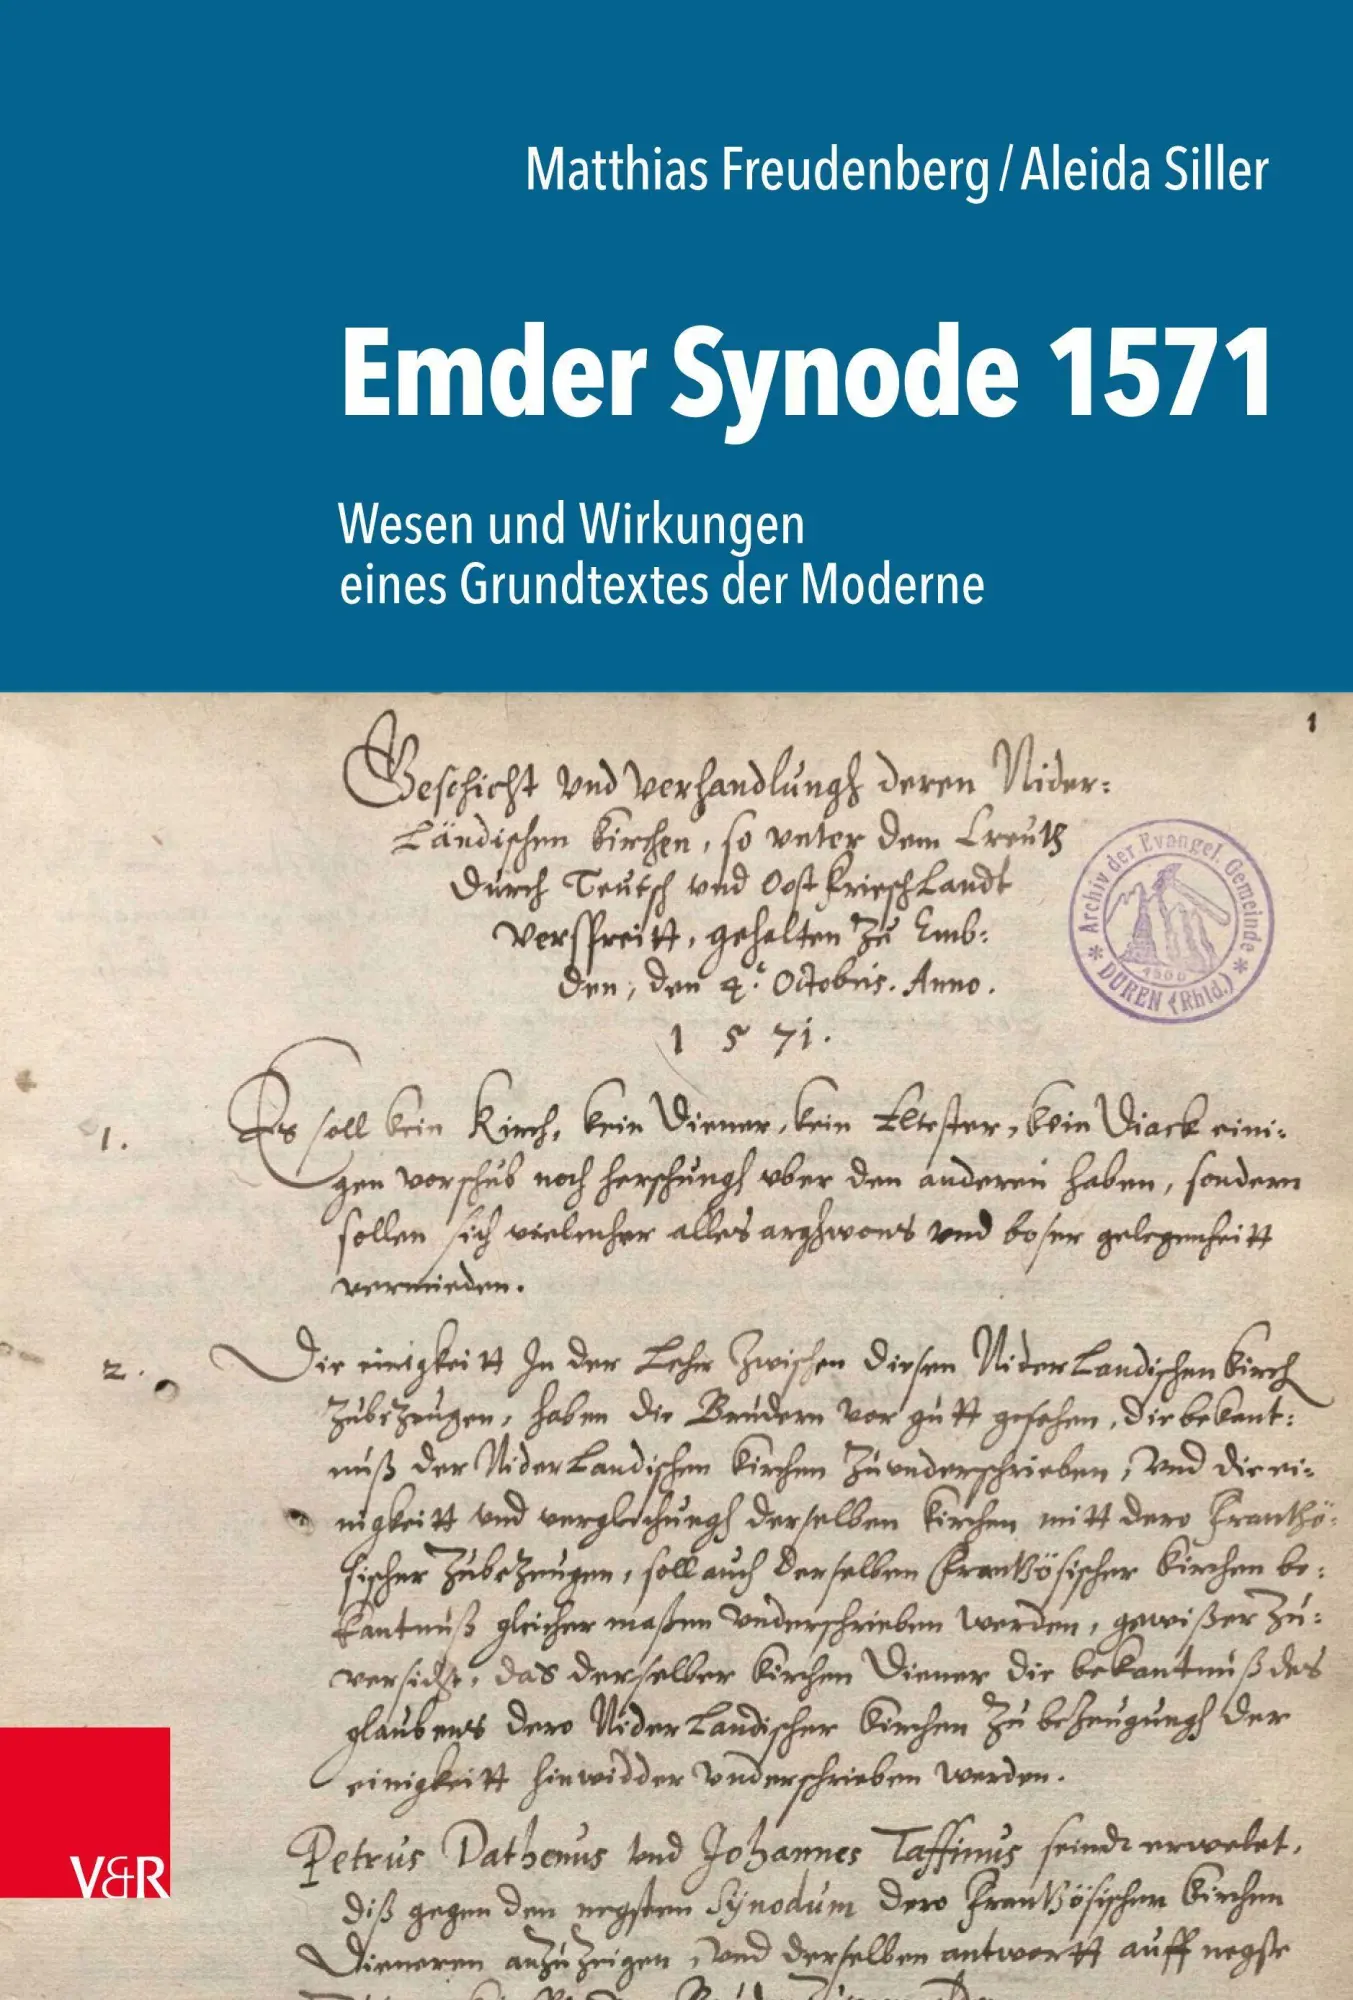 Matthias Freudenberg / Aleida Siller
Emder Synode 1571
Wesen und Wirkungen
eines Grundtextes der Moderne
1
Geschicht vnd verhandlungh deren Nider:
Ländischen kirchen, so vnter dem Creutz
durch Teutsch vnd Oostfrieschlandt
verspreitt, gehalten zu Emb:
den, den 4. Octobris. Anno.
1571.
Archiv der Evangel. Gemeinde
* DÜREN (Rhld.) *
1. Es soll kein Kirch, kein Diener, kein Eltester, kein Diack eini:
gen vorschub noch herschungh vber den anderen haben, sondern
sollen sich vielmeher alles arghwons vnd boser gelegenheitt
vermieden.
2. Die einigkeitt In der Lehr zwischen diesen NiderLandischen kirch
zubezeugen, haben die Brudern vor gutt gesehen, die bekant:
nuß der NiderLandischen kirchen zuunderschrieben, vnd die ei:
nigkeitt vnd verglichungh derselben kirchen mitt dero frantzö:
sischer zubezeugen, soll auch derselben frantzösischer kirchen be:
kantnuß gleicher maßen vnderschrieben werden, gewißer zu:
versicht, das derselber kirchen Diener die bekantnuß des
glaubens dero NiderLandischer kirchen zu bezeugungh der
einigkeitt hinwidder vnderschrieben werden.
Petrus Dathenus vnd Johannes Taffinus seindt erwelet,
diß gegen den negsten Synodum dero frantzösischer kirchen
Dieneren anzuzeigen, vnd derselben antwortt auff negste
V&R